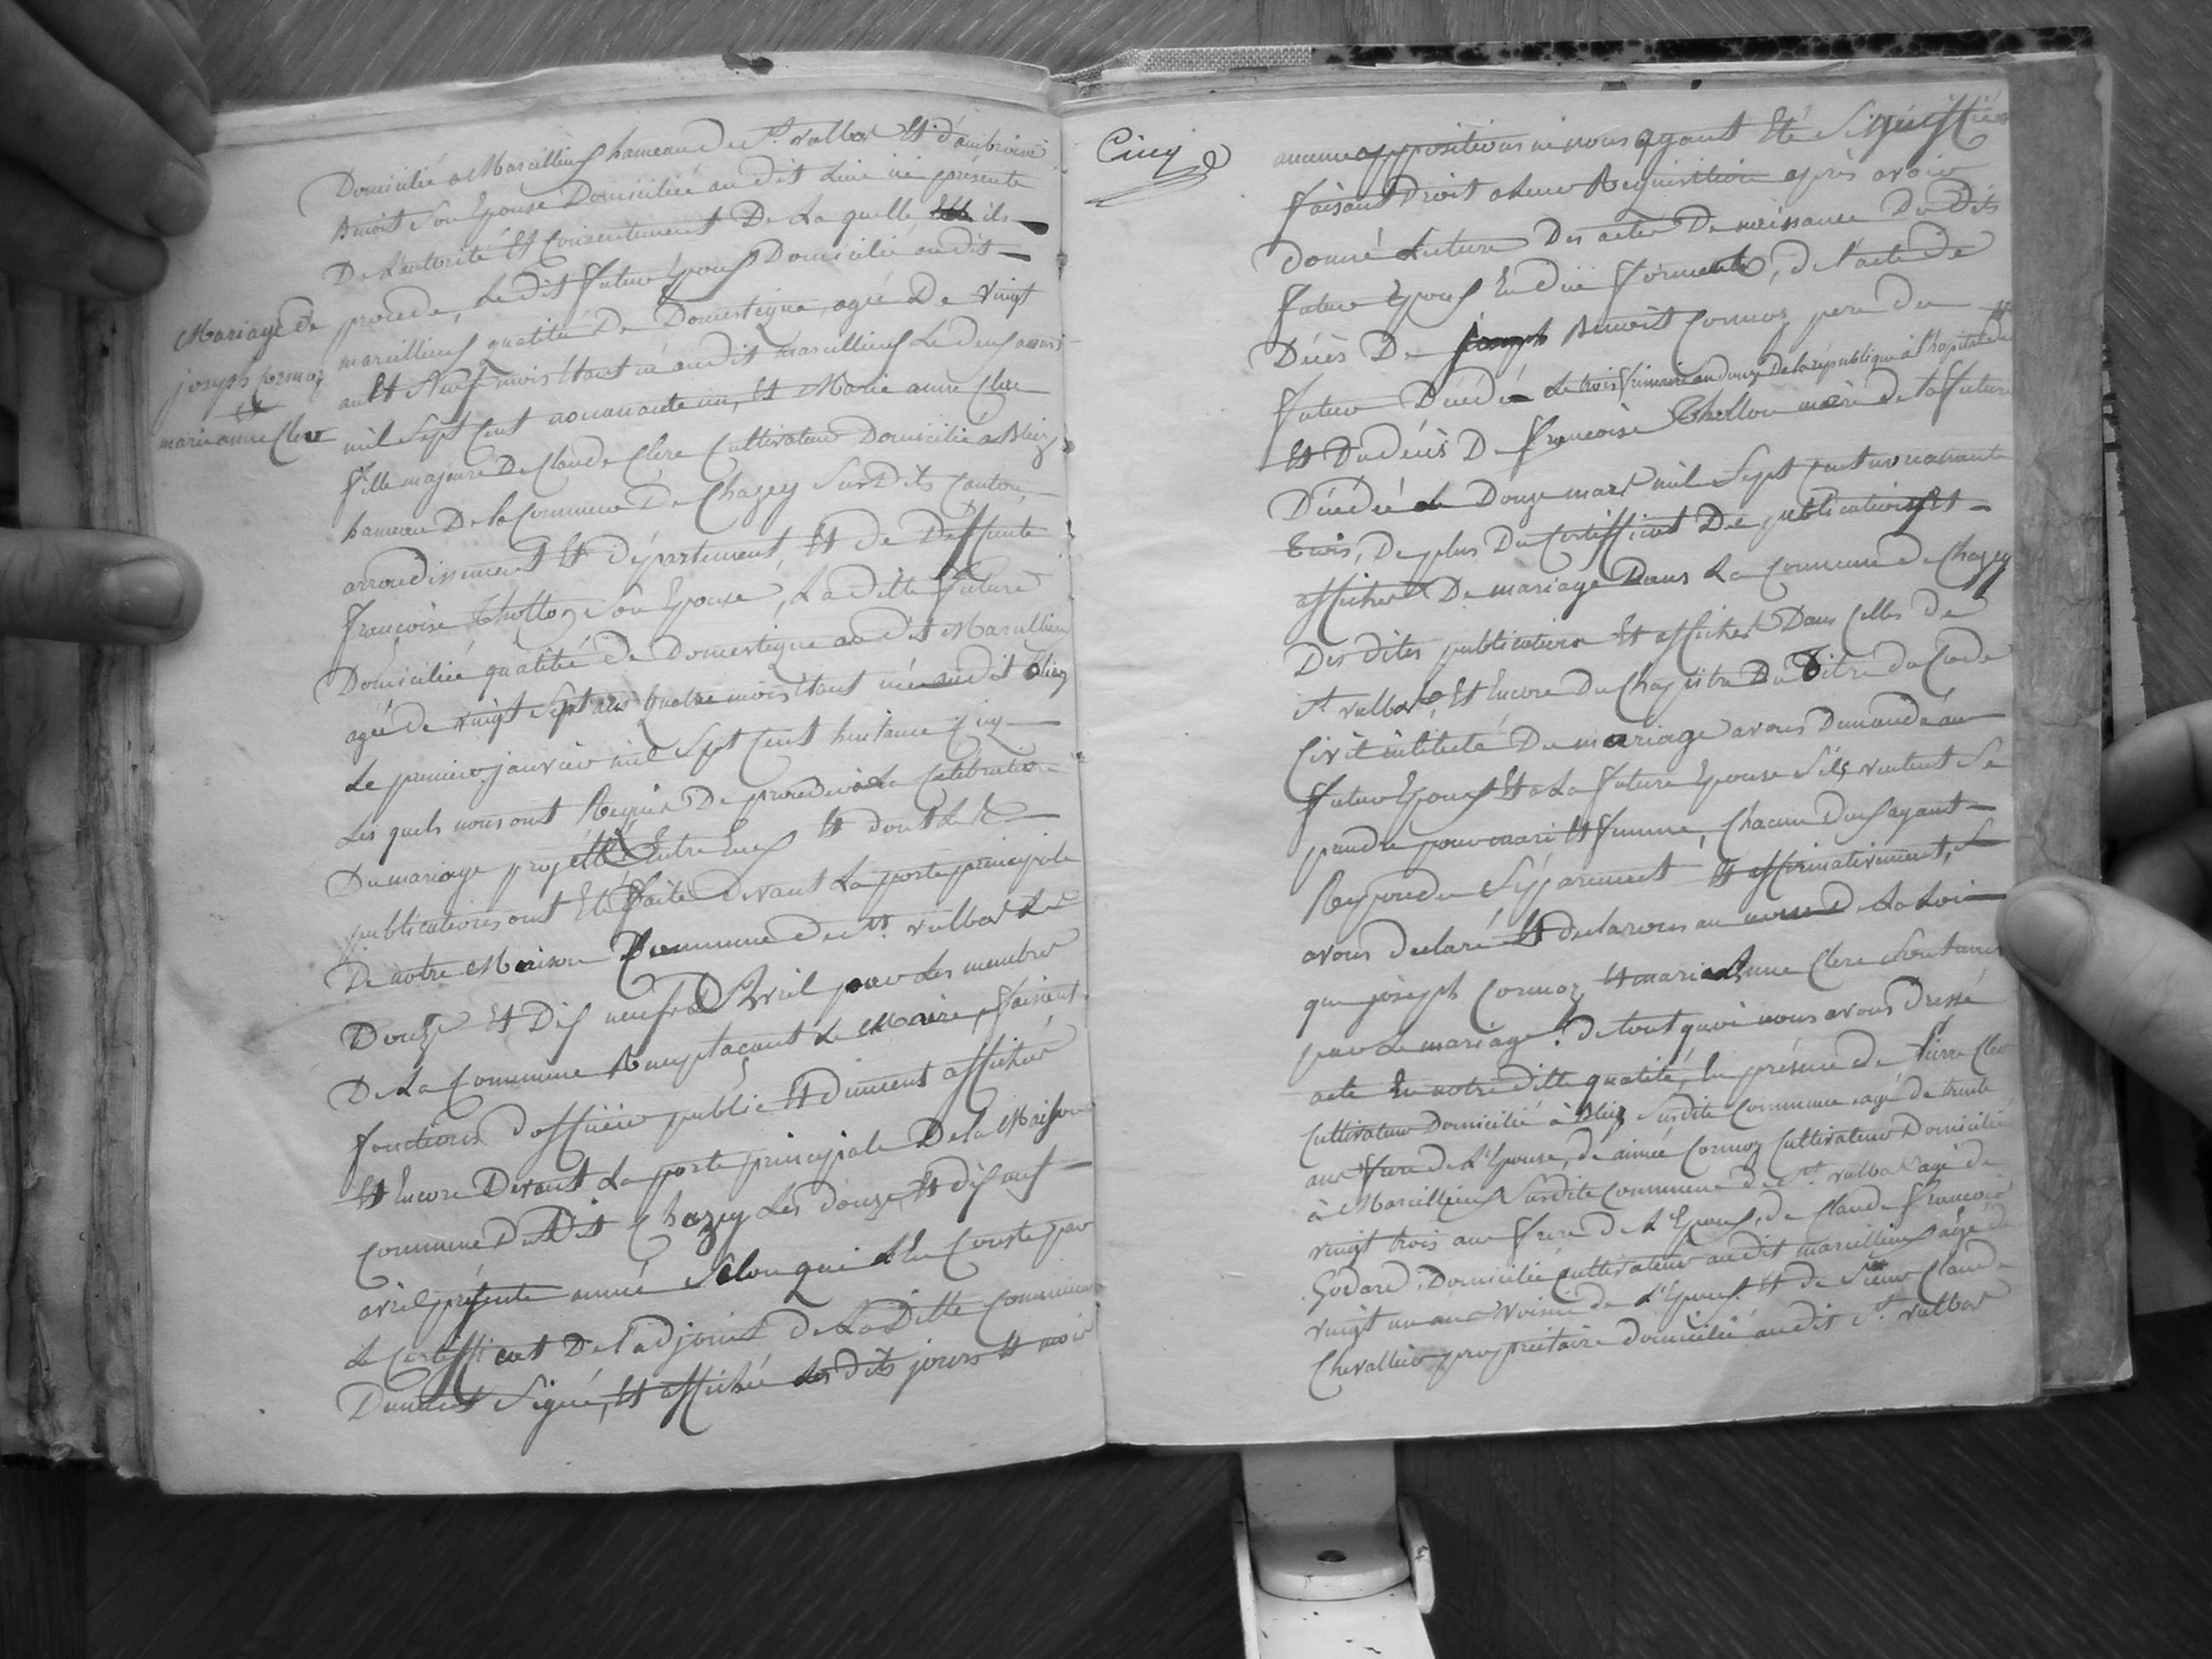 Mariage de
joseph Cormoz
Et
marie anne Clerc
Domicilié a Marcillieux hameau de St. vulbas Et d'ambroise
Benoit Son Epouse Domiciliée au dit Lieu ici présente
De L'autorité Et Consentement De La quelle ils
procede, Le dit futur Epoux Domicilié au dit
marcillieux qualité De Domestique, agée De vingt
ans Et Neuf mois Etant né au dit marcillieux Le deux
mil Sept Cent nonante un, Et Marie anne Clerc
fille majeure De Claude Clerc Cultivateur Domicilié a Bliez
hameau De la Commune De Chazey Susdits Canton,
arrondissement Et département, Et de Deffunte
françoise Thollon Son Epouse, La ditte future
Domiciliée qualité de Domestique au dit Marcillieux
agée de vingt Sept ans quatre mois Etant née au dit Bliez
Le premier janvier mil Sept Cent huitante Cinq
Les quels nous ont Requis De proceder a La Celebration
Du mariage projetté Entre Eux Et dont Les
publications ont Eté faite devant La porte principale
De notre Maison Commune de St. vulbas Les
Douze Et Dix neuf Avril par Les membres
De La Commune Remplaçant Le Maire, faisant
fonctions d'officier public Et dument affichés
Et Encore Devant La porte principale De la Maison
Commune Du dit Chazey Les douze Et dix neuf
avril présente année Selon qu'il En Conste par
Le Certifficat De l'adjoint de La Ditte Commune
Dument Signé, Et affiché Les dits jours Et mois
Cinq
aucune oppositions ne nous ayant Eté Signiffiée
faisant Droit a Leur Requisition après avoir
donné Lecture Des actes De naissance Du dits
futur Epoux En due forme, de l'acte de
Décès De Benoit Cormoz pere du
futur Décédé Le trois frimaire an douze De la république à l'hopital de
Et Du decès De françoise Thollon mère de la future
Décédée Le Douze mars mil Sept Cent nonante
trois, De plus Du Certifficat De publications Et
affiches De mariage Dans La Commune de Chazey
Des dites publications Et affiches Dans Celles de
St. vulbas, Et Encore Du Chapitre Du Titre du Code
Civil intitulé Du mariage avons Demandé au
futur Epoux Et a La future Epouse S'ils veulent Se
prendre pour mari Et femme, Chacun D'eux ayant
Repondu Séparement Et affirmativement,
avons declaré Et declarons au nom De La Loi
que joseph Cormoz Et marie Anne Clerc Sont unis
par Le mariage. de tout quoi nous avons Dressé
acte En notre ditte qualité, En présence de Pierre Clerc
Cultivateur Domicilié à Bliez Susdite Commune agé de trente
ans frere de L'Epouse, de aimé Cormoz Cultivateur Domicilié
à Marcillieux Susdite Commune de St. vulbas agé de
vingt trois ans frere de L'Epoux, de Claude françois
Godard Domicilié Cultivateur au dit marcillieux agé de
vingt un ans Voisin de L'Epoux Et de Sieur Claude
Chevallier propriétaire domicilié au dit St. vulbas